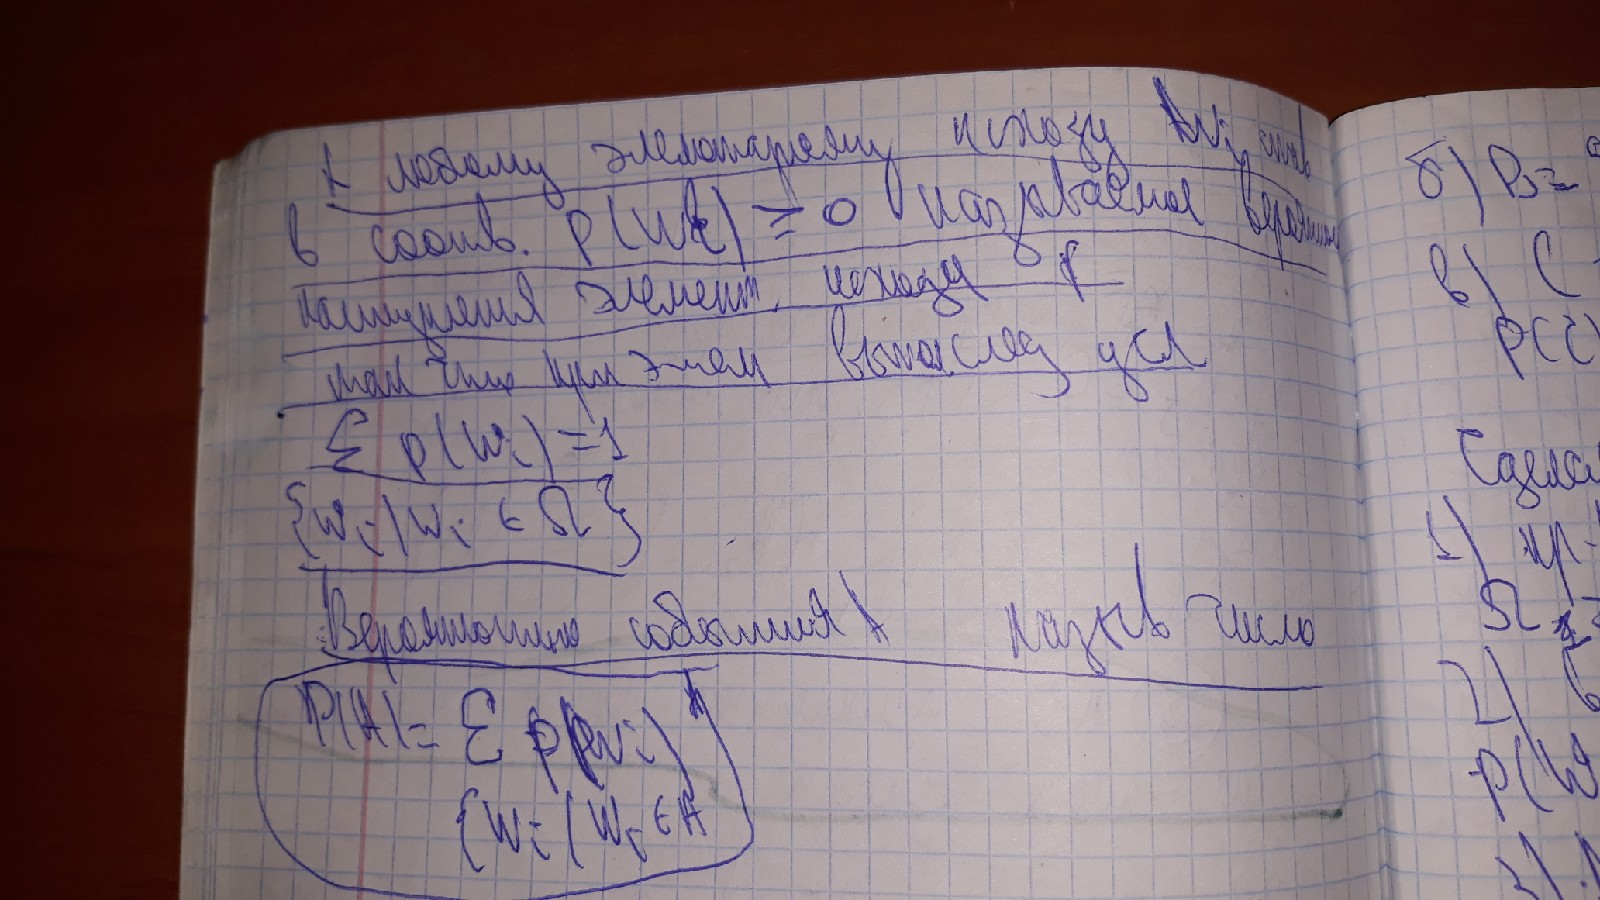 К любому элементарному исходу Wi став
в соотв. p(Wi) ≥ 0 называемое вероятн
наступления элемент. исхода
так что при этом вып. след усл
Σ p(Wi) = 1
{Wi | Wi ∈ Ω}
Вероятностью события A назыв число
P(A) = Σ p(Wi)
{Wi | Wi ∈ A
б) P
в) C
P(C)
Сделал
1)
Ω
2)
P(W
3)